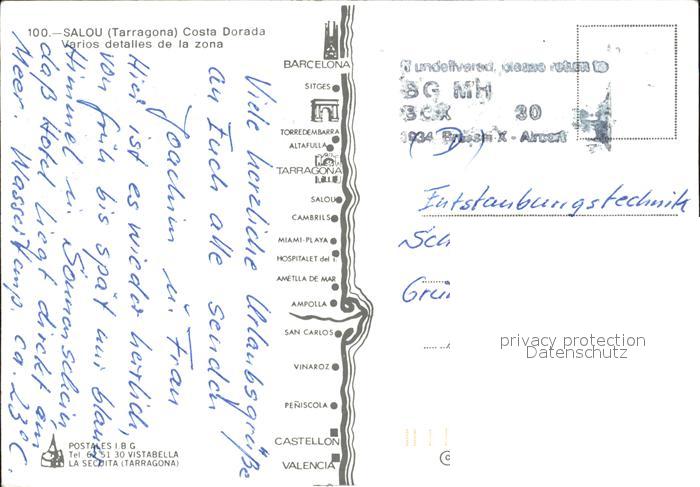 100.—SALOU (Tarragona) Costa Dorada
Varios detalles de la zona
Viele herzliche Urlaubsgrüße
an Euch alle senden
Joachim u. Frau
Hier ist es wieder herrlich,
von früh bis spät nur blauer
Himmel u. Sonnenschein
daß Hotel liegt direkt am
Meer. Wassertemp. ca. 23°C.
POSTALES I.B.G
Tel. 62 51 30 VISTABELLA
LA SECUITA (TARRAGONA)
BARCELONA
SITGES
TORREDEMBARRA
ALTAFULLA
TARRAGONA
SALOU
CAMBRILS
MIAMI-PLAYA
HOSPITALET del I.
AMETLLA DE MAR
AMPOLLA
SAN CARLOS
VINAROZ
PEÑISCOLA
CASTELLON
VALENCIA
If undelivered, please return to
BG MH
BOX 30
1934 Brussin X - Airport
(D)
Entstaubungstechnik
Sch
Grü
privacy protection
Datenschutz